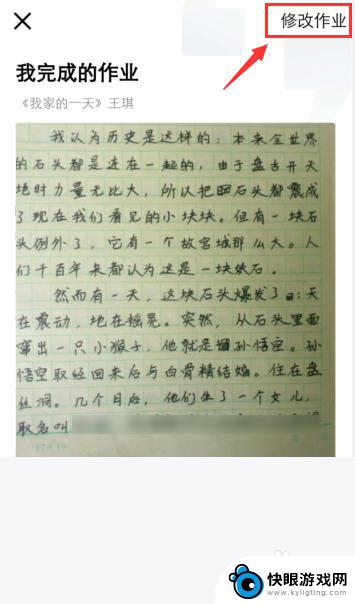 修改作业
我完成的作业
《我家的一天》王琪
我认为历史是这样的：本来全世界
的石头都是连在一起的，由于盘古开天
地时力量无比大，所以把石头都震成
了现在我们看见的小块块。但有一块石
头例外了，它有一个故宫城那么大。人
们千百年来都认为这是一块妖石。
然而有一天，这块石头爆发了：天
在震动，地在摇晃。突然，从石头里面
窜出一只小猴子，他就是孙悟空。孙
悟空取经回来后与白骨精结婚。住在盘
丝洞。几个月后，他们生了一个女儿，
取名叫
快眼游戏网
www.kyligting.com